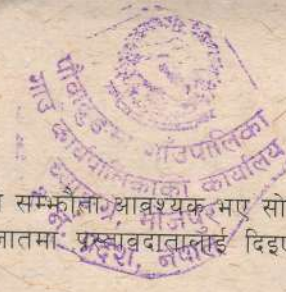 पौवादुङमा गाउँपालिका
गाउँ कार्यपालिकाको कार्यालय
भोजपुर
प्रदेश, नेपाल
सम्झौता आवश्यक भए सो
जातमा प्रस्तावदातालाई दिइए